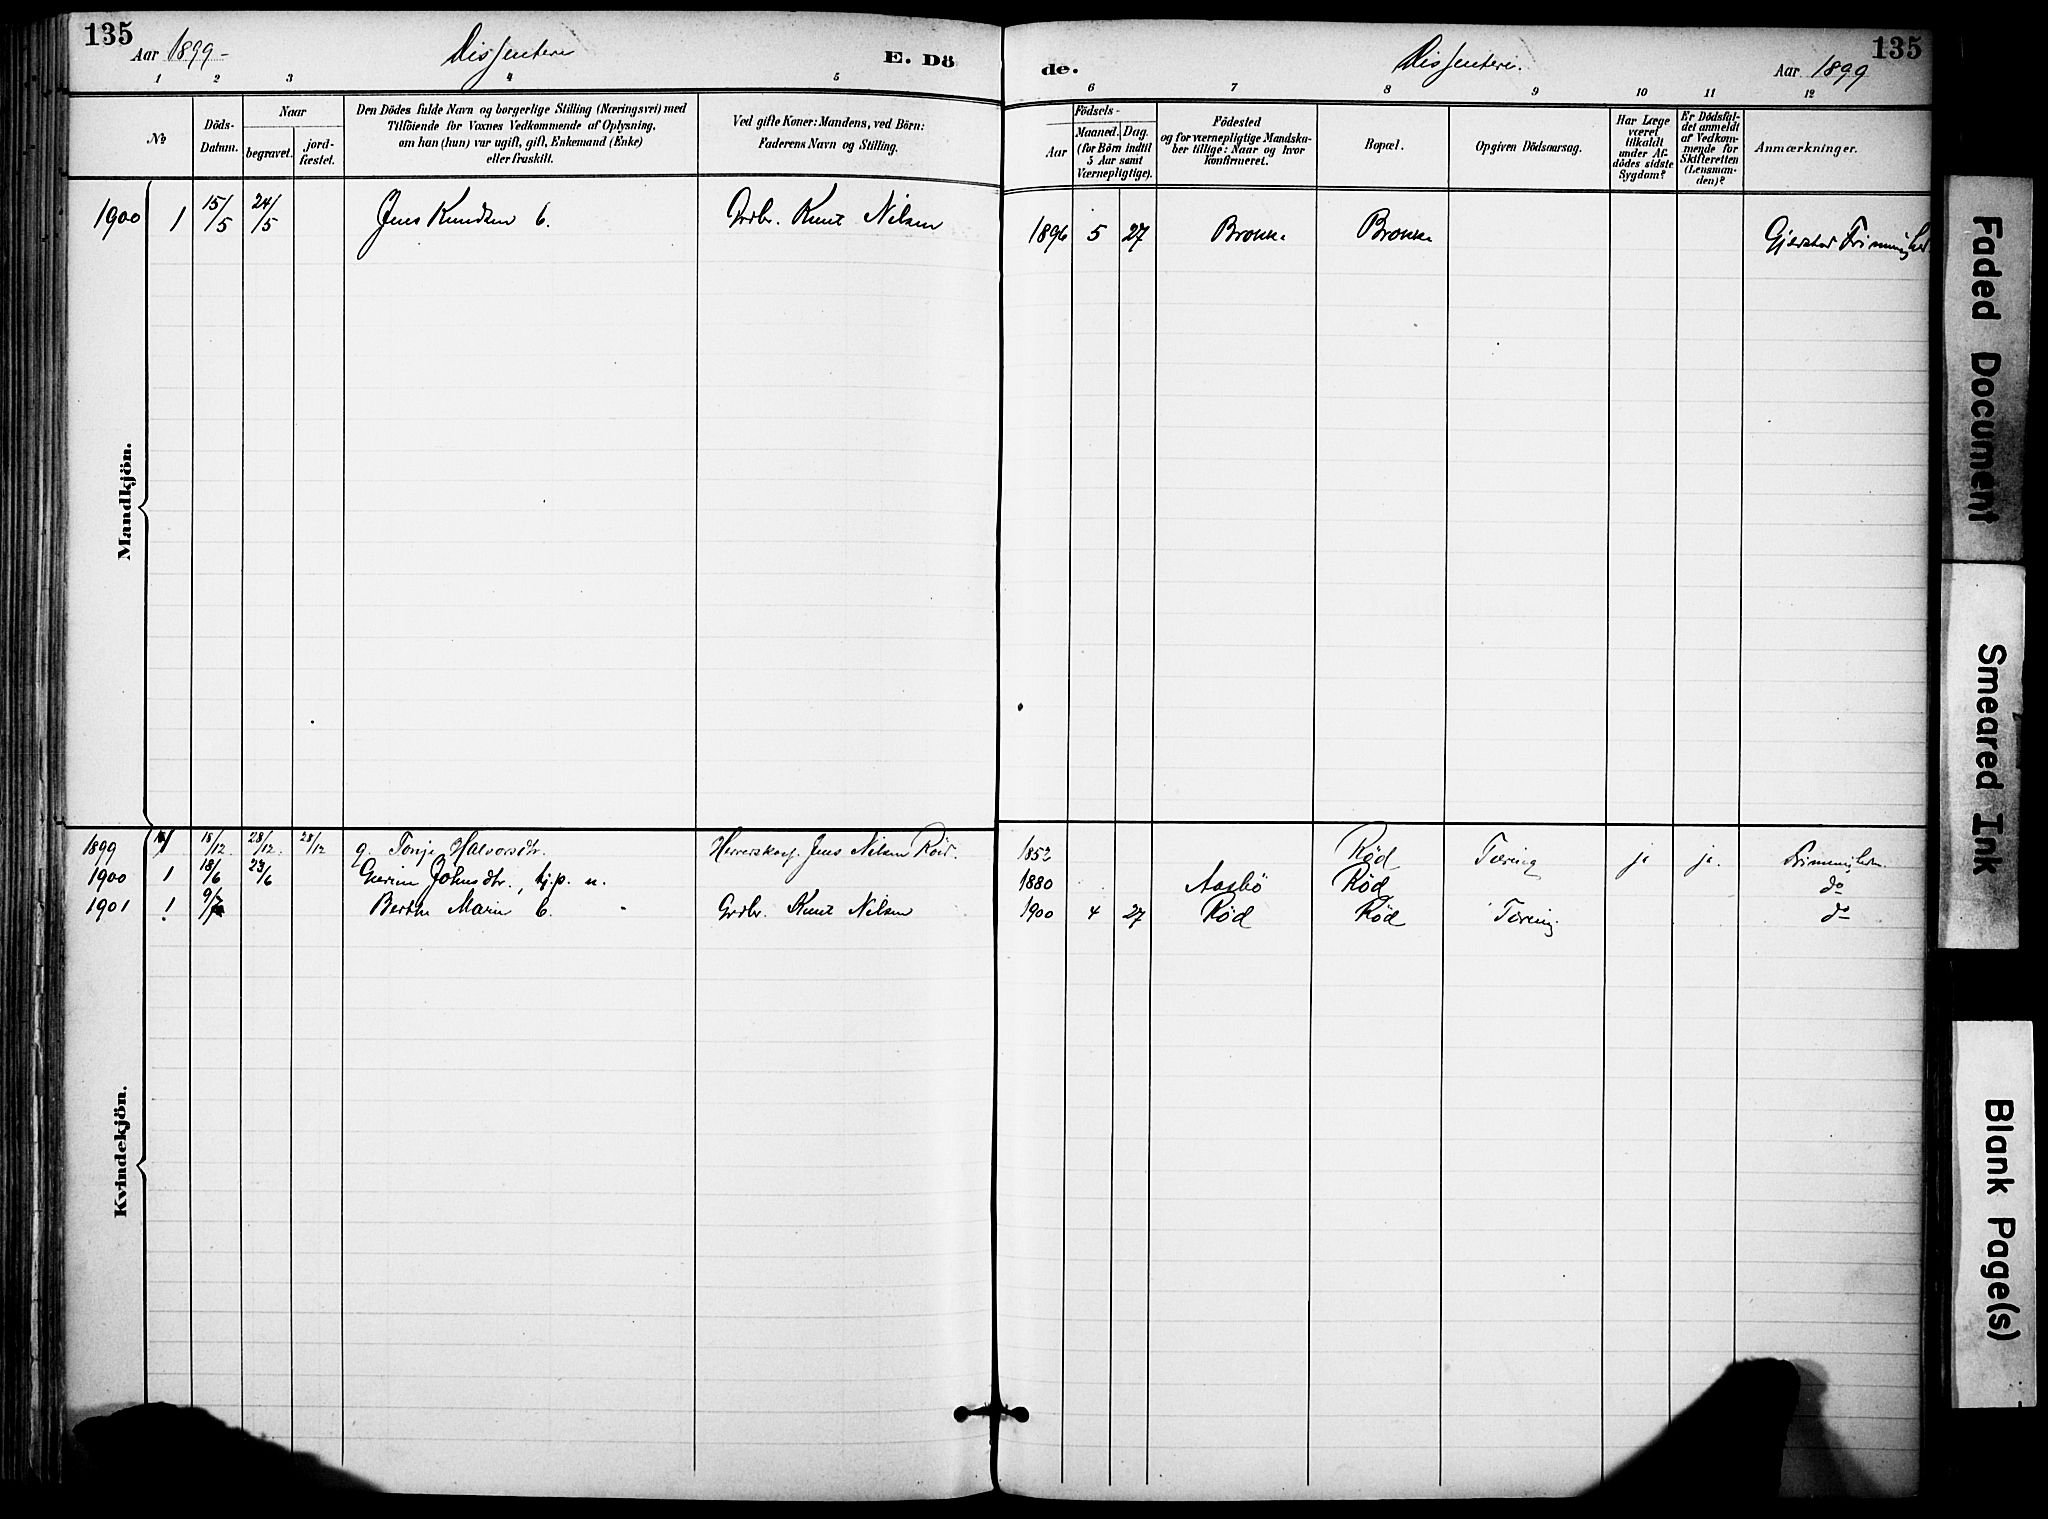 135
Aar 1899 -
Dissentere
E. Dö
de.
Dissentere.
Aar 1899
135
1 2 3 4 5 6 7 8 9 10 11 12
No.
Döds-
Datum.
Naar
begravet.
jord-
fæstet.
Den Dödes fulde Navn og borgerlige Stilling (Næringsvei) med
Tilföiende for Voxnes Vedkommende af Oplysning,
om han (hun) var ugift, gift, Enkemand (Enke)
eller fraskilt.
Ved gifte Koner: Mandens, ved Börn:
Faderens Navn og Stilling.
Födsels-
Aar
Maaned. Dag.
(for Börn indtil
5 Aar samt
Værnepligtige).
Födested
og for værnepligtige Mandska-
ber tillige: Naar og hvor
konfirmeret.
Bopæl.
Opgiven Dödsaarsag.
Har Læge
været
tilkaldt
under Af-
dödes sidste
Sygdom?
Er Dödsfal-
det anmeldt
af Vedkom-
mende for
Skifteretten
(Lensman-
den)?
Anmærkninger.
Mandkjön.
1900 1 15/5 24/5 Jens Knudsen b. Grdbr. Knut Nilsen 1896 5 27 Gjerstad Frimenighed
Kvindekjön.
1899 18/12 28/12 28/12 g. Tonje Halvorsdtr. Jens Nilsen Röd. 1852 Rød Tæring ja ja. Frimenighed
1900 1 18/6 23/6 Johnsdtr., tj.p. u. 1880 Aasbö Rød do
1901 1 Berthe Marie b. Grdbr. Knut Nilsen 1900 4 27 Rød Rød Tæring. do
Faded Document
Smeared Ink
Blank Page(s)